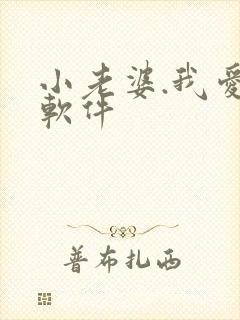 小老婆.我愛
軟件
普布扎西